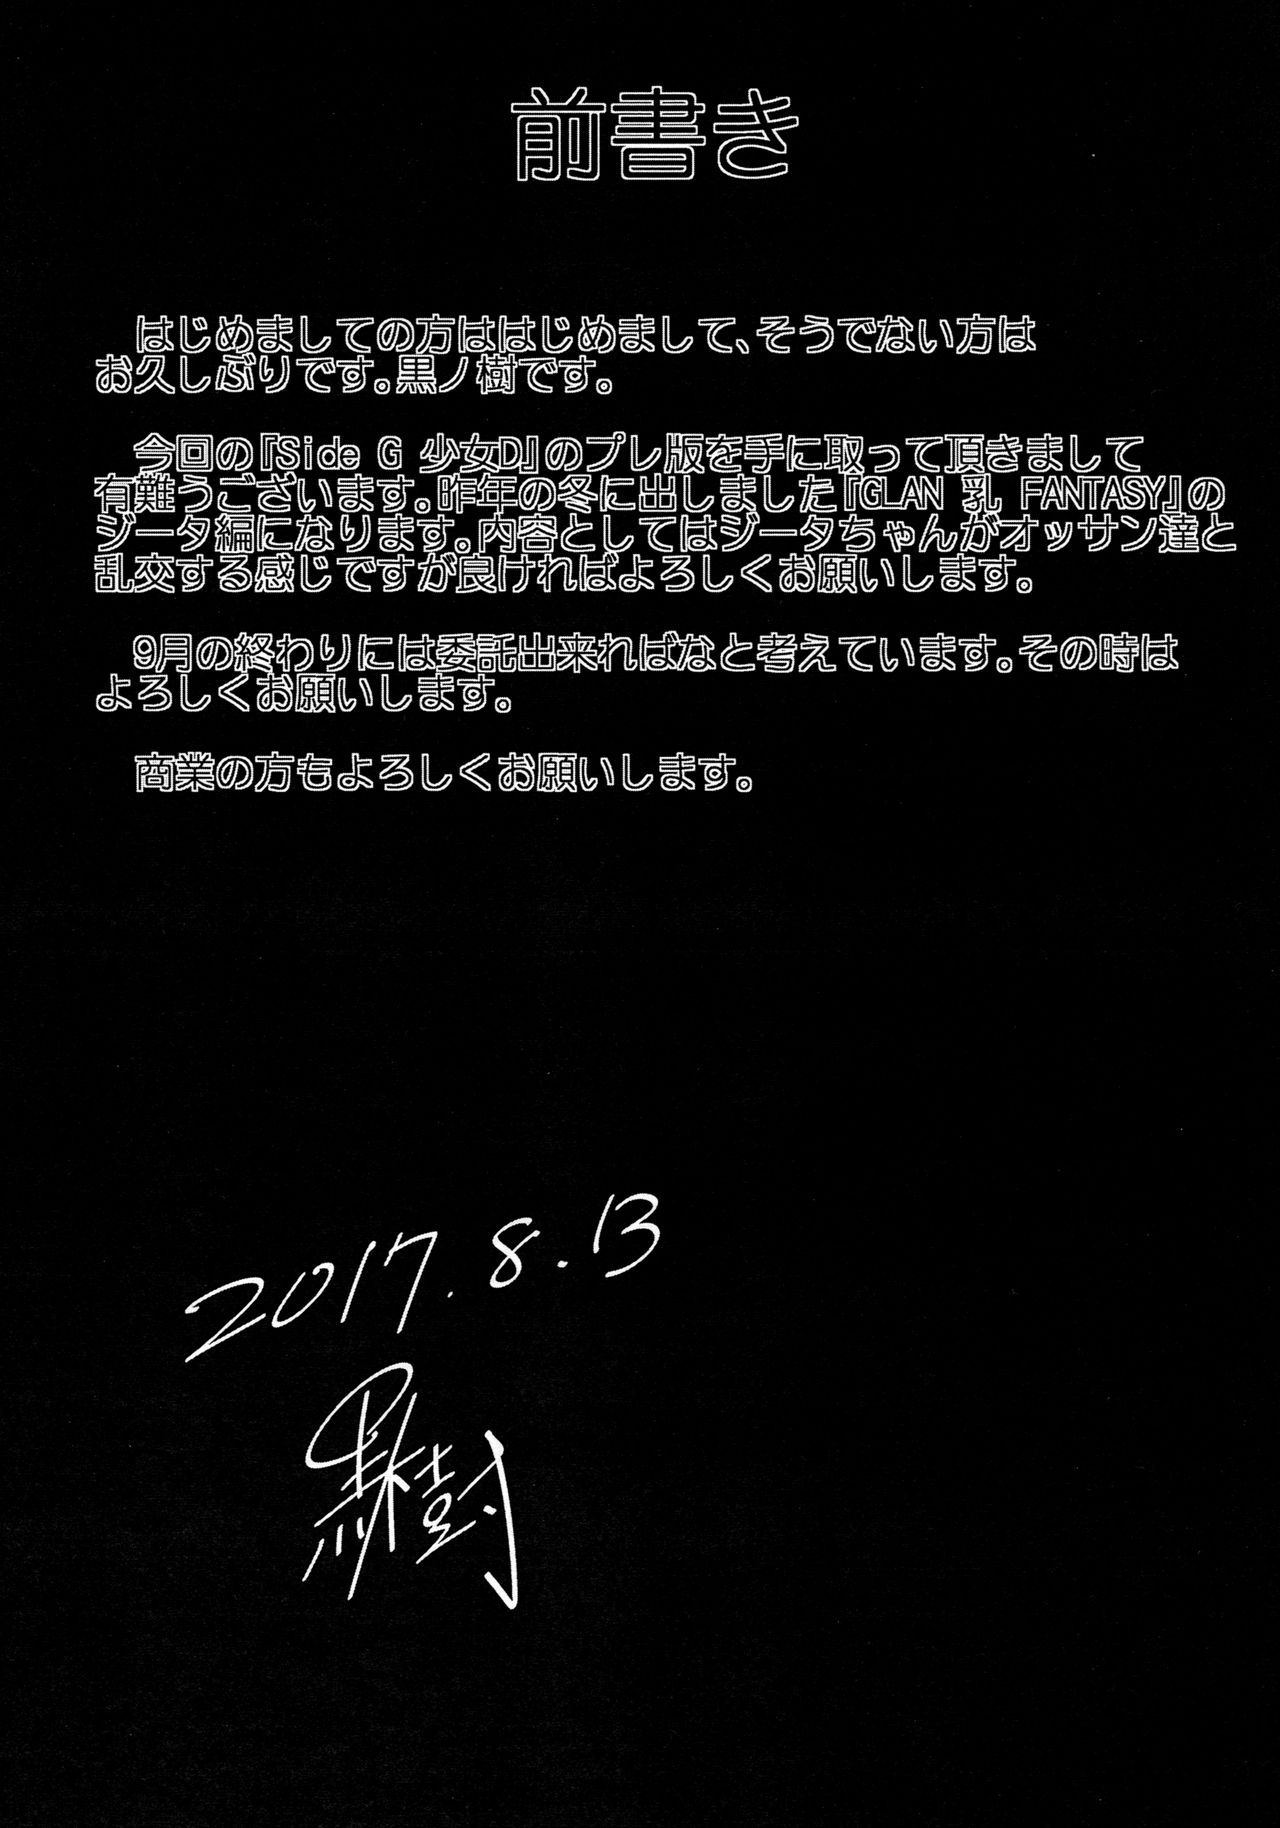 前書き
はじめましての方ははじめまして、そうでない方は
お久しぶりです。黒ノ樹です。
今回の『Side G 少女D』のプレ版を手に取って頂きまして
有難うございます。昨年の冬に出しました『GLAN 乳 FANTASY』の
ジータ編になります。内容としてはジータちゃんがオッサン達と
乱交する感じですが良ければよろしくお願いします。
9月の終わりには委託出来ればなと考えています。その時は
よろしくお願いします。
商業の方もよろしくお願いします。
2017.8.13
黒ノ樹